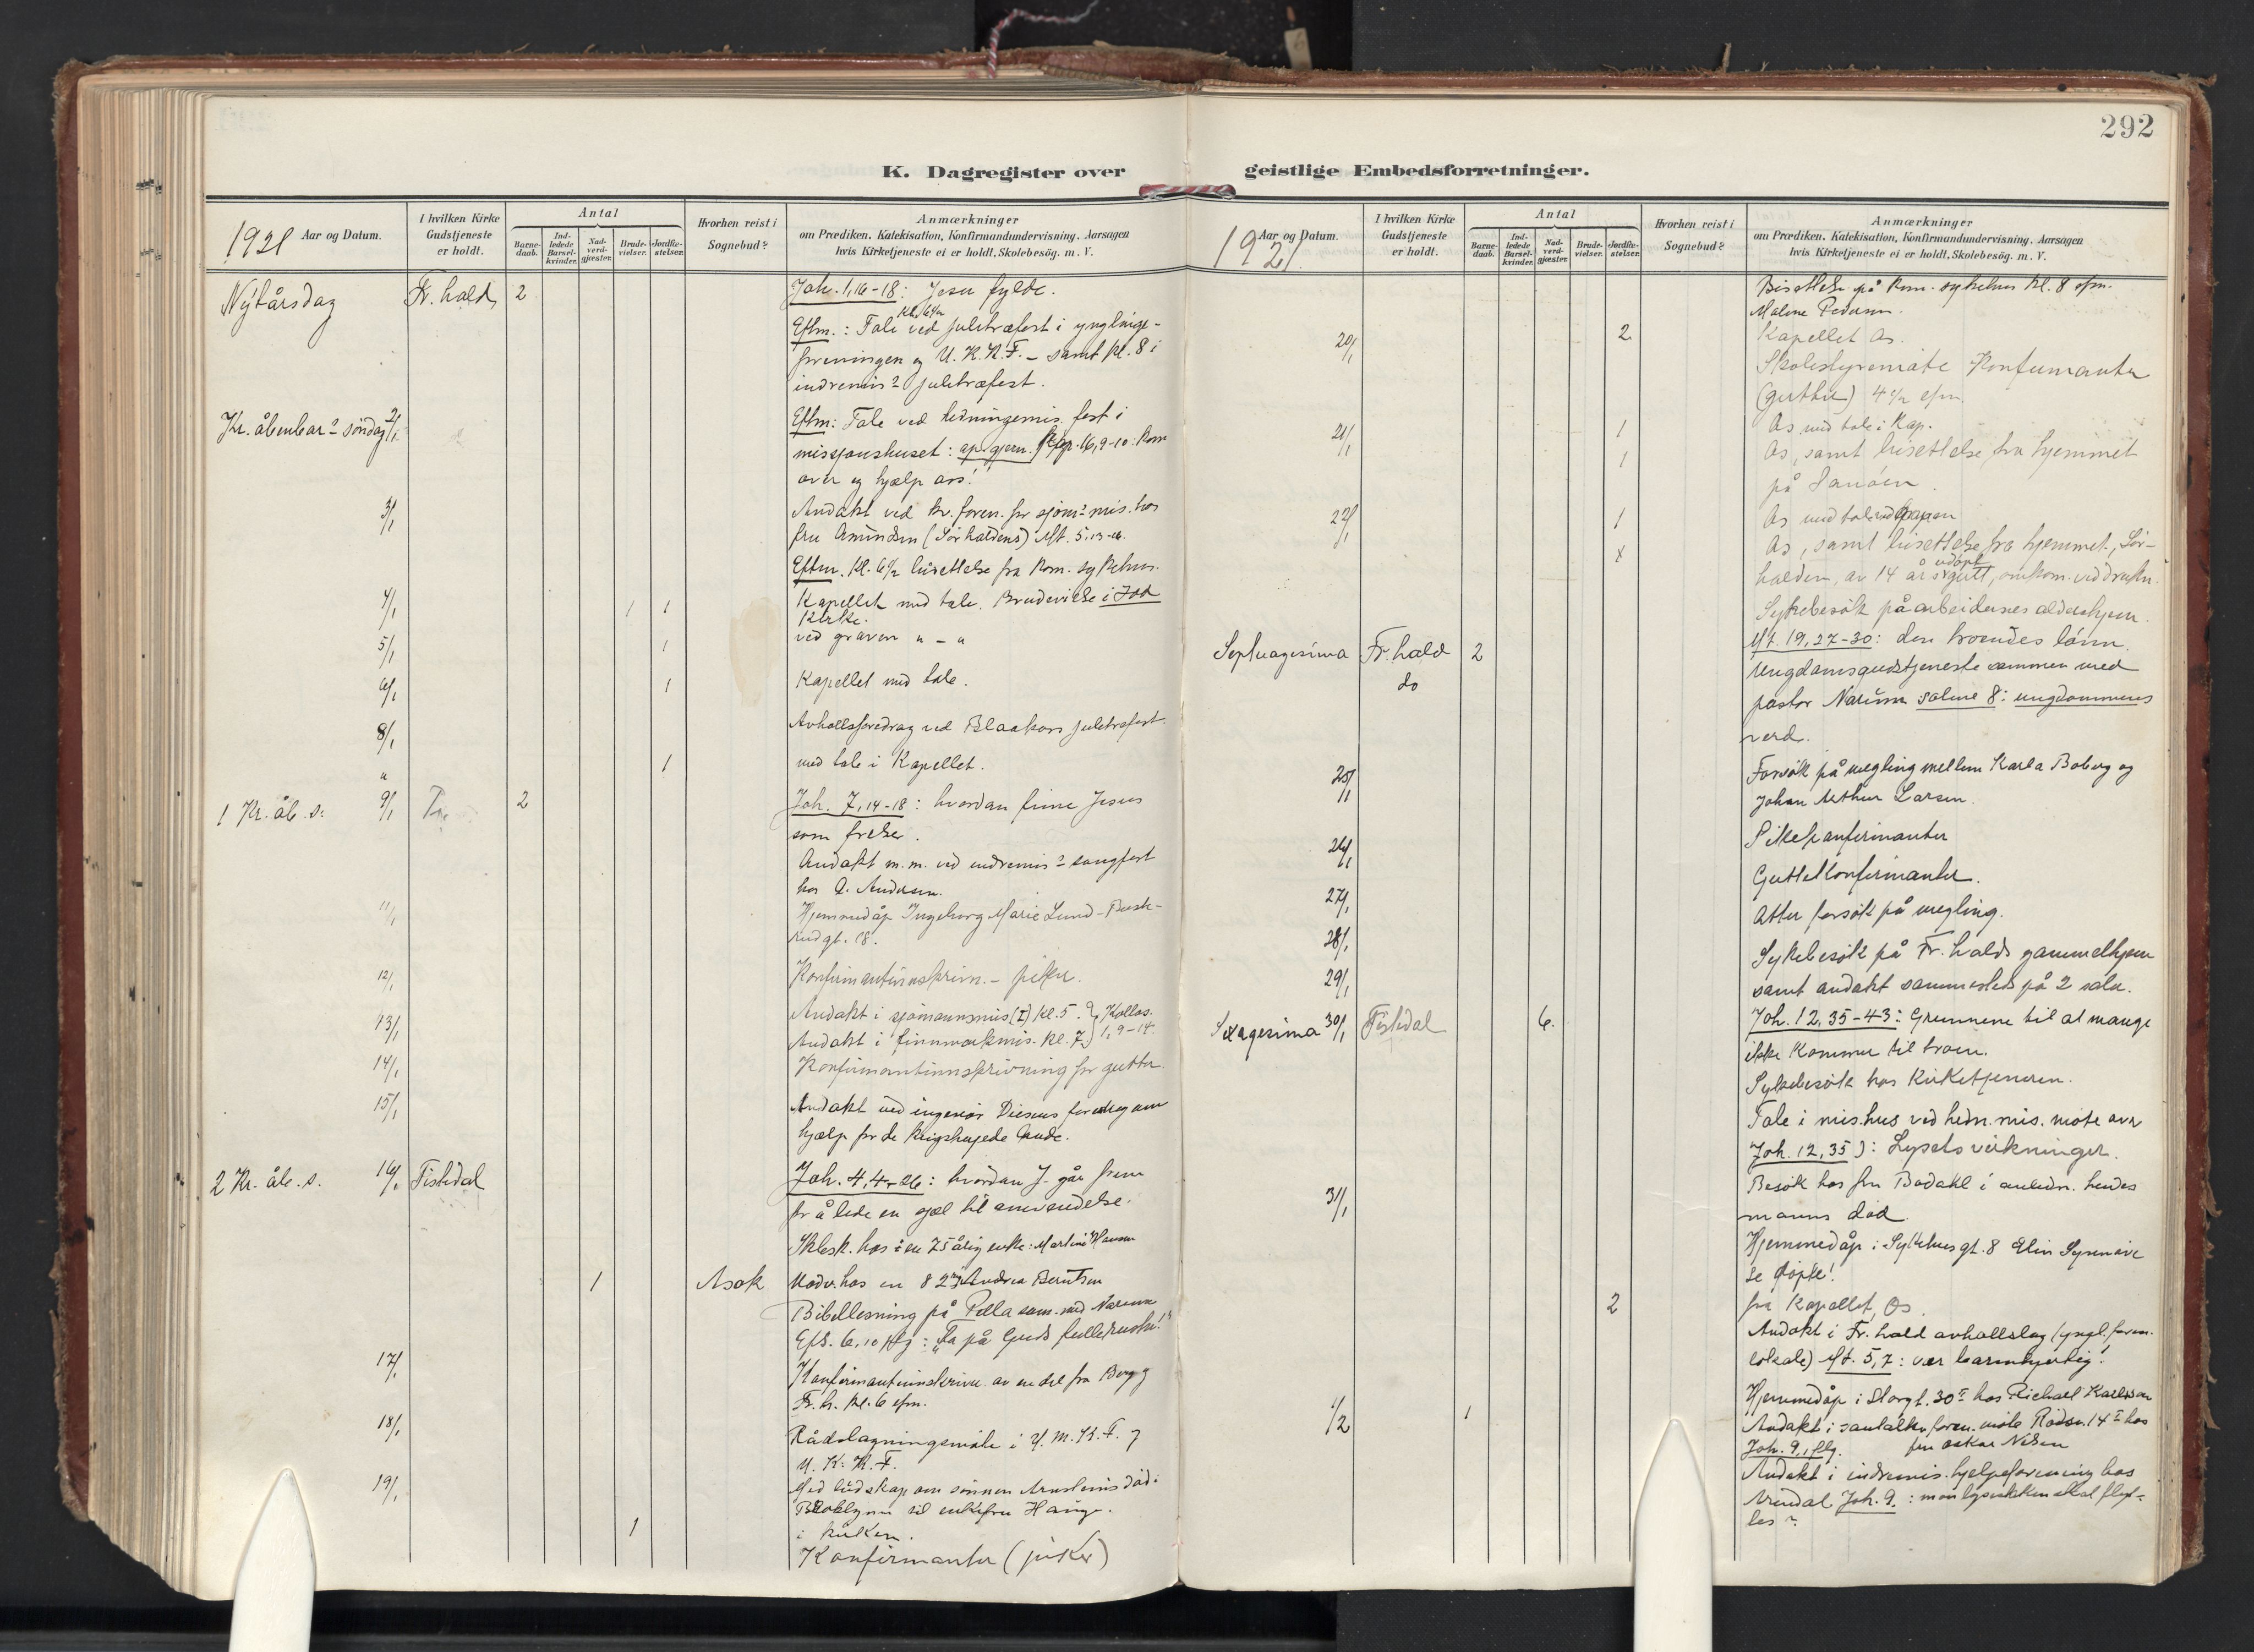 292
K. Dagregister over
1921 Aar og Datum.
I hvilken Kirke Gudstjeneste er holdt.
Antal
Barnedaab.
Indledede Barselkvinder.
Nadverdgjæster.
Brudevielser.
Jordfæstelser.
Hvorhen reist i Sognebud?
Anmærkninger
om Prædiken, Katekisation, Konfirmandundervisning, Aarsagen
hvis Kirketjeneste ei er holdt, Skolebesøg. m. V.
Nytårsdag Fr. hald 2 Joh. 1,16-18: Jesu fylde.
Kl. 6½
Eftm.: Tale ved juletræfest i ynglinge-
foreningen og U. K. K. F. - samt kl. 8 i
indremis? juletræfest.
Kr. åbenbar? søndag 2/1 Eftm: Tale ved hedningemis. fest i
missjonshuset: ap. gjern. 16,9-10: Kom
over og hjælp oss!
3/1 Andakt ved kv. foren. for sjöm? mis. hos
fru Amundsen (Sörhaldens) Mt. 5,13-16.
Eftm. Kl. 6½ bisettelse fra Kom. sykehus.
4/1 1 1 Kapellet med tale. Brudevielse i
Kirke.
5/1 1 ved graven " - "
6/1 1 Kapellet med tale.
8/1 Avholdsforedrag ved Blaakors juletrefest.
" 1 med tale i Kapellet.
1 Kr. åb. s: 9/1 Fr. 2 Joh. 7,14-18: hvordan finne Jesus
som frelser.
Andakt m. m. ved indremis? sangfest
hos A. Andersen.
11/1 Hjemmedåp Ingeborg Marie Lund - Busk-
rudgt. 18.
12/1 Konfirmantinnskrivn. - piker.
13/1 Andakt i sjömannsmis (I) kl. 5. Kolloss.
Andakt i finnmarkmis. kl. 7. 1,9-14.
14/1 Konfirmantinnskrivning for gutter.
15/1 Andakt ved ingeniör Diesens foredrag om
hjælp for de krigsherjede lande.
2 Kr. åb. s. 16/1 Tistedal Joh. 4,4-26: hvordan J. går frem
for å lede en sjæl til omvendelse.
Skbesk. hos en 75 årig enke: Martine Hansen
1 Asak Nadv. hos en 82 Andrea Berntsen
Bibellesning på Pella sam. med Narum
Efs. 6,10 flg: "Ta på Guds fulle rustn.!"
17/1 Konfirmantinnskrivn. av en del fra Berg og
Fr. h. kl. 6 efm.
18/1 Rådslagningsmöte i K. M. K. F. og
U. K. K. F.
19/1 Med budskap om sönnen Arnsteins död i
Brooklyn til enkefru Hauge.
1 i kirken.
Konfirmanter (piker)
geistlige Embedsforretninger.
1921. Aar og Datum.
I hvilken Kirke Gudstjeneste er holdt.
Antal
Barnedaab.
Indledede Barselkvinder.
Nadverdgjæster.
Brudevielser.
Jordfæstelser.
Hvorhen reist i Sognebud?
Anmærkninger
om Prædiken, Katekisation, Konfirmandundervisning, Aarsagen
hvis Kirketjeneste ei er holdt, Skolebesøg. m. V.
Bisettelse på Kom. sykehus kl. 8 efm.
Malene Pedersen.
20/1 2 Kapellet Os.
Skolestyremöte Konfirmanter
(gutter) 4½ efm.
21/1 1 Os med tale i Kap.
1 Os, samt bisettelse fra hjemmet
på Sauöen.
22/1 1 Os med tale ved graven
x Os, samt bisettelse fra hjemmet, Sör-
halden, av 14 års udöpt gutt, omkom. ved drukn.
Sykebesök på arbeidernes aldershjem.
Septuagesima Fr. hald 2 Mt. 19,27-30: den troendes lönn.
do Ungdomsgudstjeneste sammen med
pastor Narum salme 8: ungdommens
verd.
25/1 Forsök på megling mellem Karla Boberg og
Johan Arthur Larsen.
26/1 Pikekonfirmanter
27/1 Guttekonfirmanter.
28/1 Atter forsök på megling.
29/1 Sykebesök på Fr. halds gammelhjem
samt andakt sammesteds på 2 saler.
Sexagesima 30/1 Tistedal 6. Joh. 12,35-43: Grunnene til at mange
ikke kommer til troen.
Sykebesök hos Kirketjeneren.
Tale i mis.hus ved hedn. mis. möte over
Joh. 12,35): Lysets virkninger.
31/1 Besök hos fru Bödahl i anledn. hendes
manns död.
Hjemmedåp i Sykehusgt. 8 Elin Synnöve
se döpte!
2 fra Kapellet, Os.
Andakt i Fr. hald avholdslag (yngl. foren.
lokale) Mt. 5,7: vær barmhjertig!
1/2 1 Hjemmedåp i Storgt. 30 hos Richart Karlsson
Andakt i santalkv. foren. möte Rödsv. 14 hos
Joh. 9,1 flg. fru Oskar Nilsen
Andakt i indremis. hjelpeforening hos
Arendal Joh. 9.: mon lysestaken skal flyt-
tes?